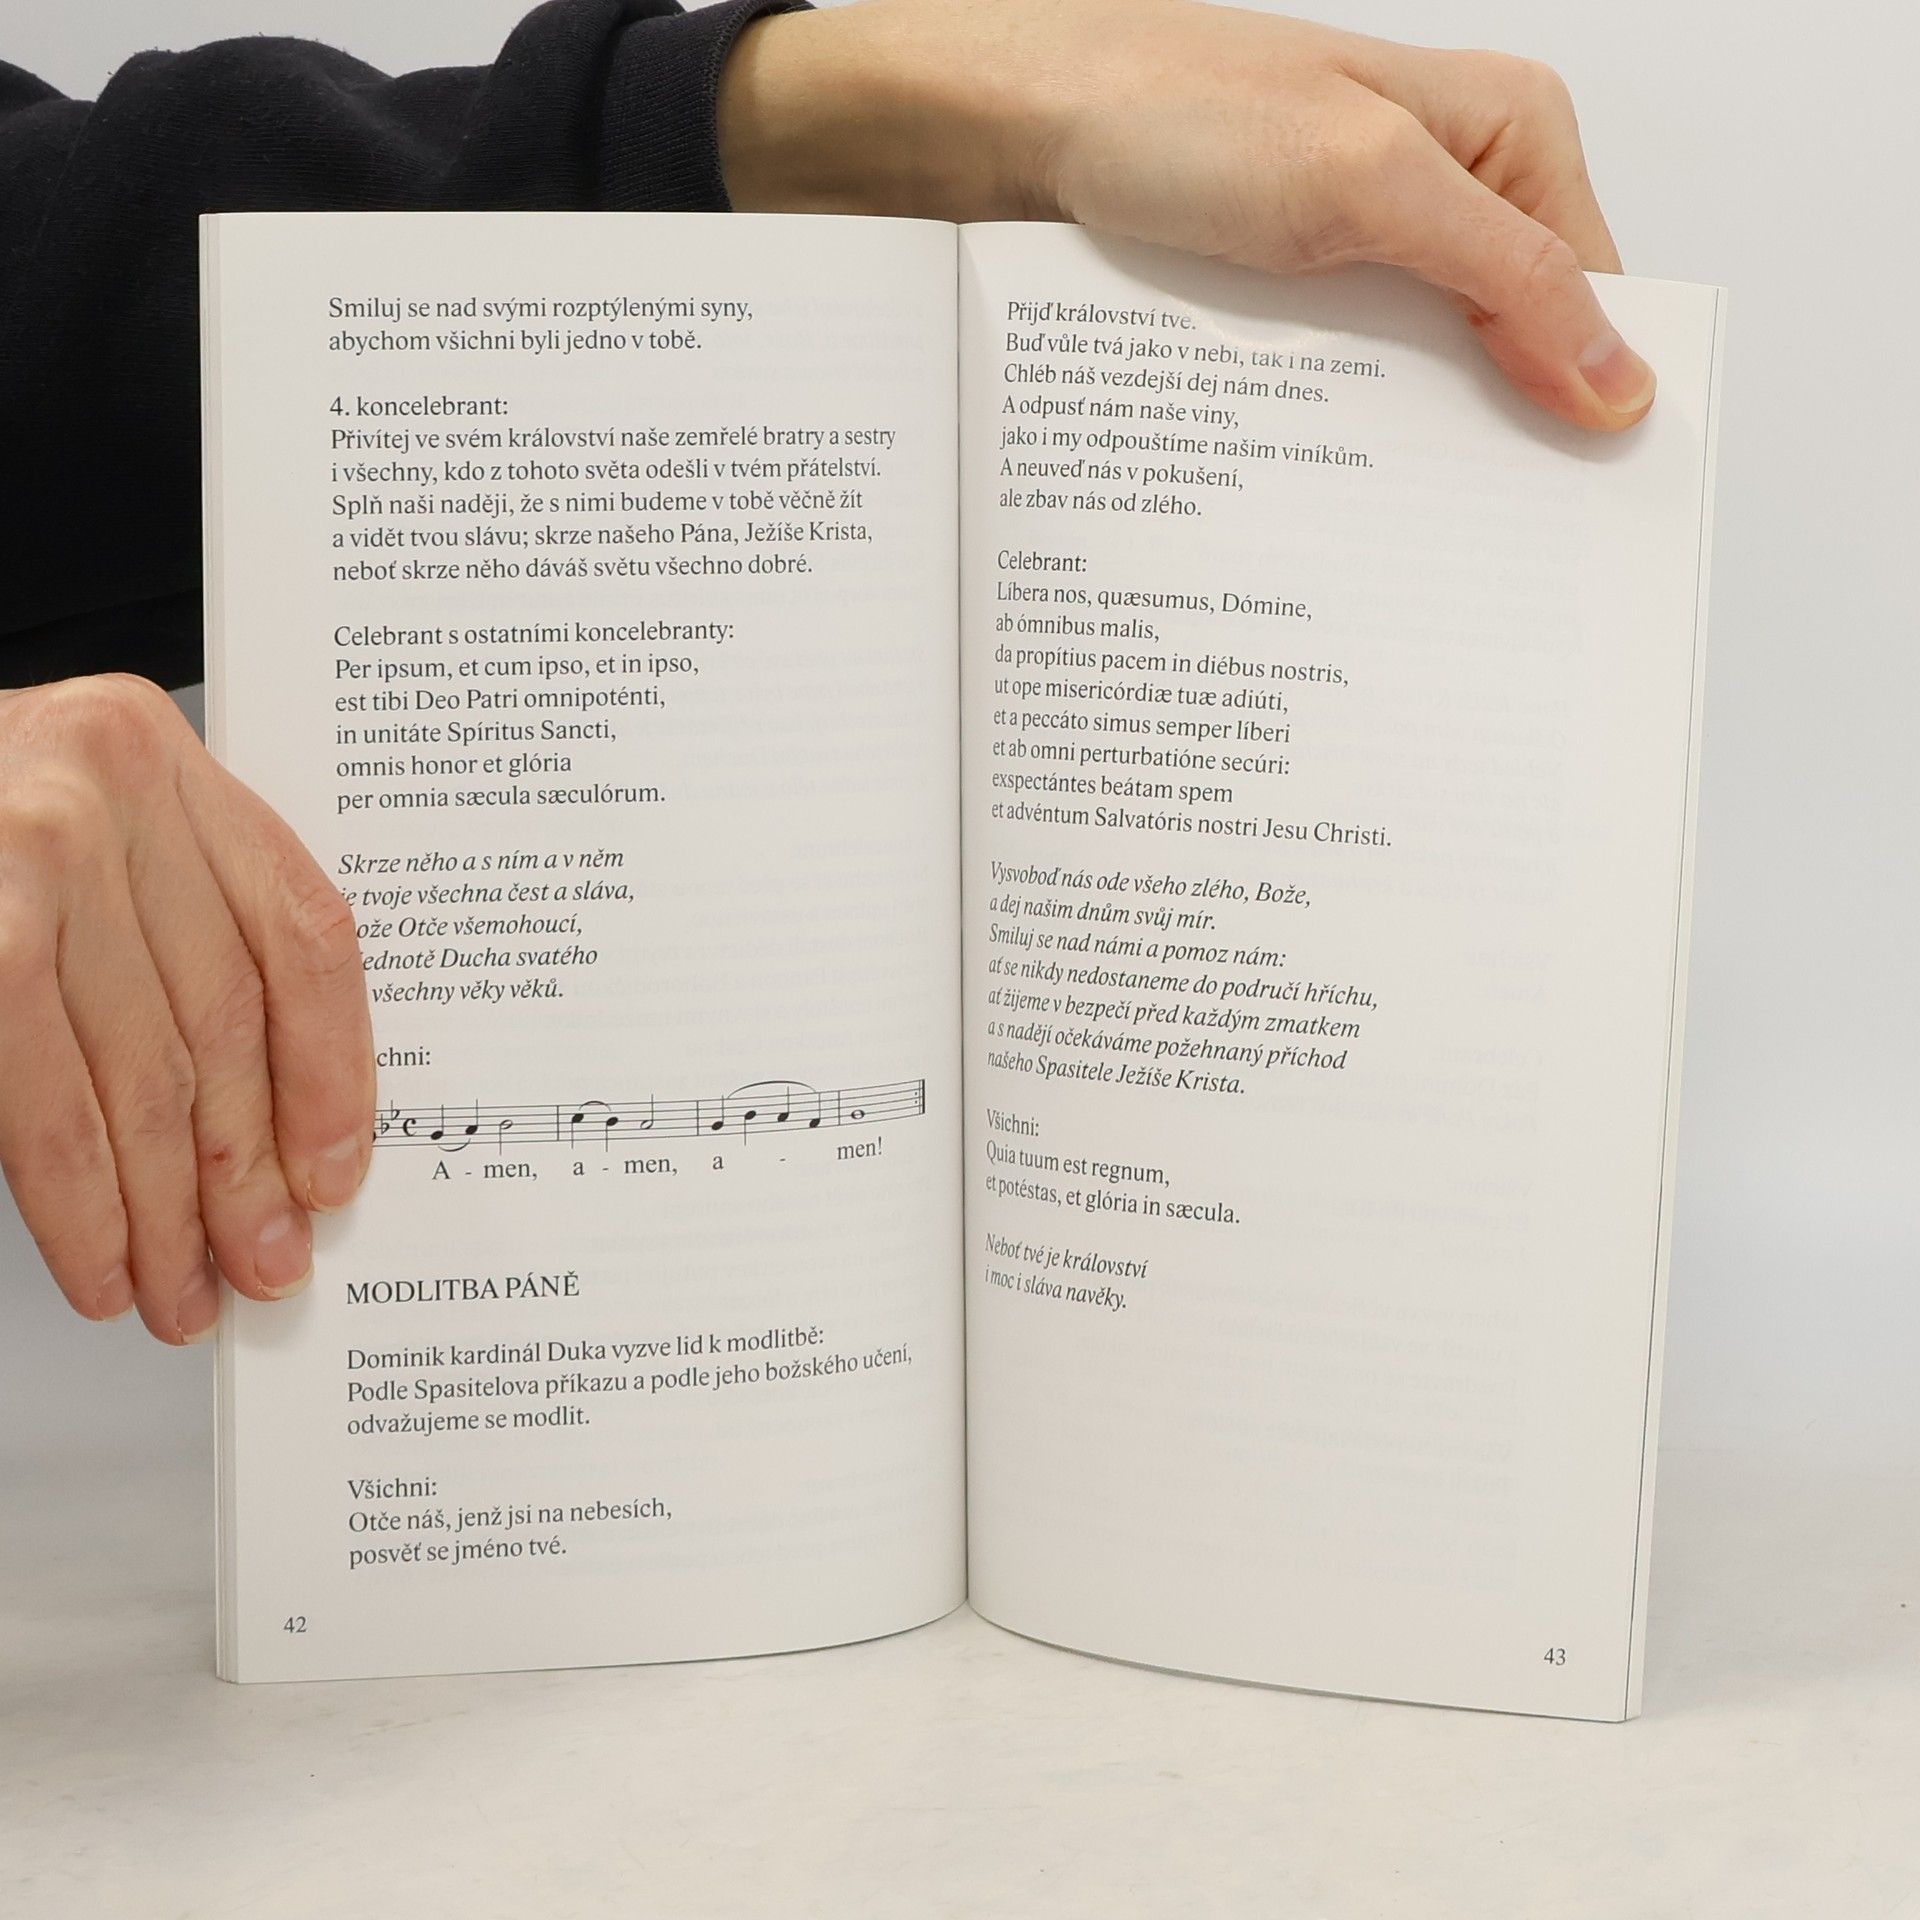 Smiluj se nad svými rozptýlenými syny,
abychom všichni byli jedno v tobě.
4. koncelebrant:
Přivítej ve svém království naše zemřelé bratry a sestry
i všechny, kdo z tohoto světa odešli v tvém přátelství.
Splň naši naději, že s nimi budeme v tobě věčně žít
a vidět tvou slávu; skrze našeho Pána, Ježíše Krista,
neboť skrze něho dáváš světu všechno dobré.
Celebrant s ostatními koncelebranty:
Per ipsum, et cum ipso, et in ipso,
est tibi Deo Patri omnipoténti,
in unitáte Spíritus Sancti,
omnis honor et glória
per omnia sæcula sæculórum.
Skrze něho a s ním a v něm
je tvoje všechna čest a sláva,
ože Otče všemohoucí,
jednotě Ducha svatého
všechny věky věků.
chni:
A - men, a - men, a - men!
MODLITBA PÁNĚ
Dominik kardinál Duka vyzve lid k modlitbě:
Podle Spasitelova příkazu a podle jeho božského učení,
odvažujeme se modlit.
Všichni:
Otče náš, jenž jsi na nebesích,
posvěť se jméno tvé.
42
Přijď království tvé.
Buď vůle tvá jako v nebi, tak i na zemi.
Chléb náš vezdejší dej nám dnes.
A odpusť nám naše viny,
jako i my odpouštíme našim viníkům.
A neuveď nás v pokušení,
ale zbav nás od zlého.
Celebrant:
Líbera nos, quæsumus, Dómine,
ab ómnibus malis,
da propítius pacem in diébus nostris,
ut ope misericórdiæ tuæ adiúti,
et a peccáto simus semper líberi
et ab omni perturbatióne secúri:
exspectántes beátam spem
et advéntum Salvatóris nostri Jesu Christi.
Vysvoboď nás ode všeho zlého, Bože,
a dej našim dnům svůj mír.
Smiluj se nad námi a pomoz nám:
ať se nikdy nedostaneme do područí hříchu,
ať žijeme v bezpečí před každým zmatkem
a s nadějí očekáváme požehnaný příchod
našeho Spasitele Ježíše Krista.
Všichni:
Quia tuum est regnum,
et potéstas, et glória in sæcula.
Neboť tvé je království
i moc i sláva navěky.
43